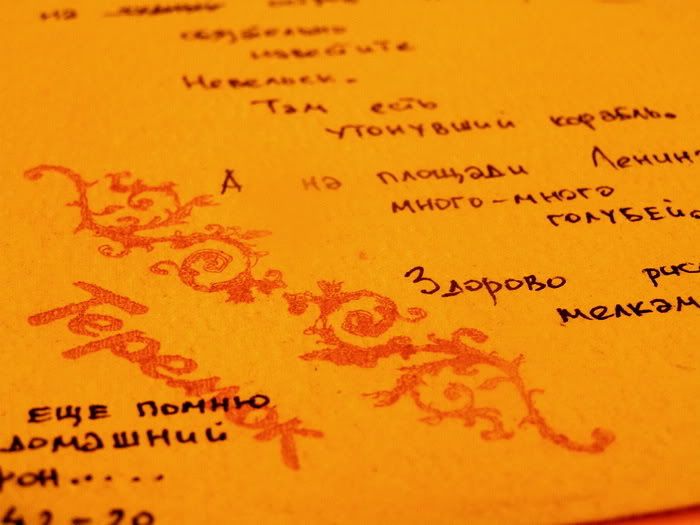 на острове
обязательно
навестите
Невельск.
Там есть
утонувший корабль.
А на площади Ленина
много-много
голубей
Здорово рис
мелкам
Теремок
еще помню
домашний
фон.....
42-20